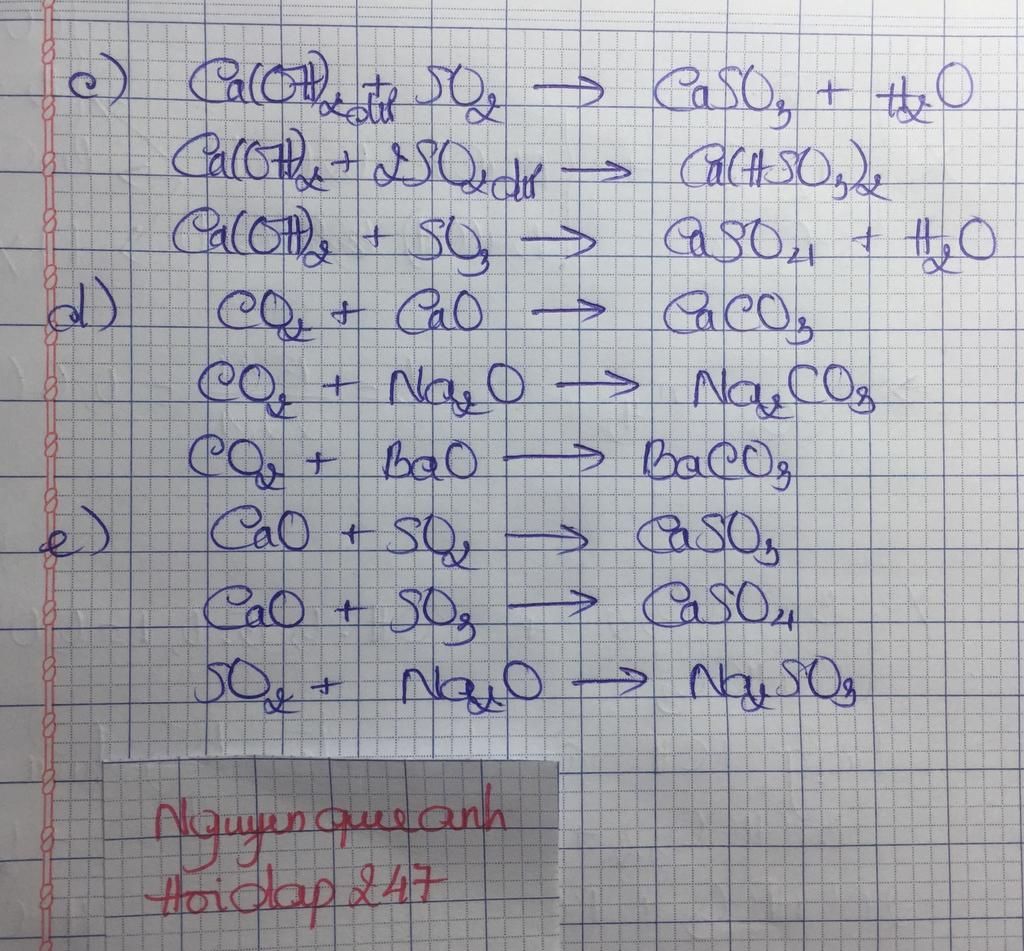 c) Ca(OH)₂ dư + SO₂ → CaSO₃ + H₂O
Ca(OH)₂ + 2SO₂ dư → Ca(HSO₃)₂
Ca(OH)₂ + SO₃ → CaSO₄ + H₂O
d) CO₂ + CaO → CaCO₃
CO₂ + Na₂O → Na₂CO₃
CO₂ + BaO → BaCO₃
e) CaO + SO₂ → CaSO₃
CaO + SO₃ → CaSO₄
SO₂ + Na₂O → Na₂SO₃
Nguyenqueanh
Hoidap 247